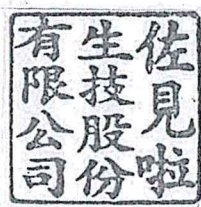 佐見啦
生技股份
有限公司